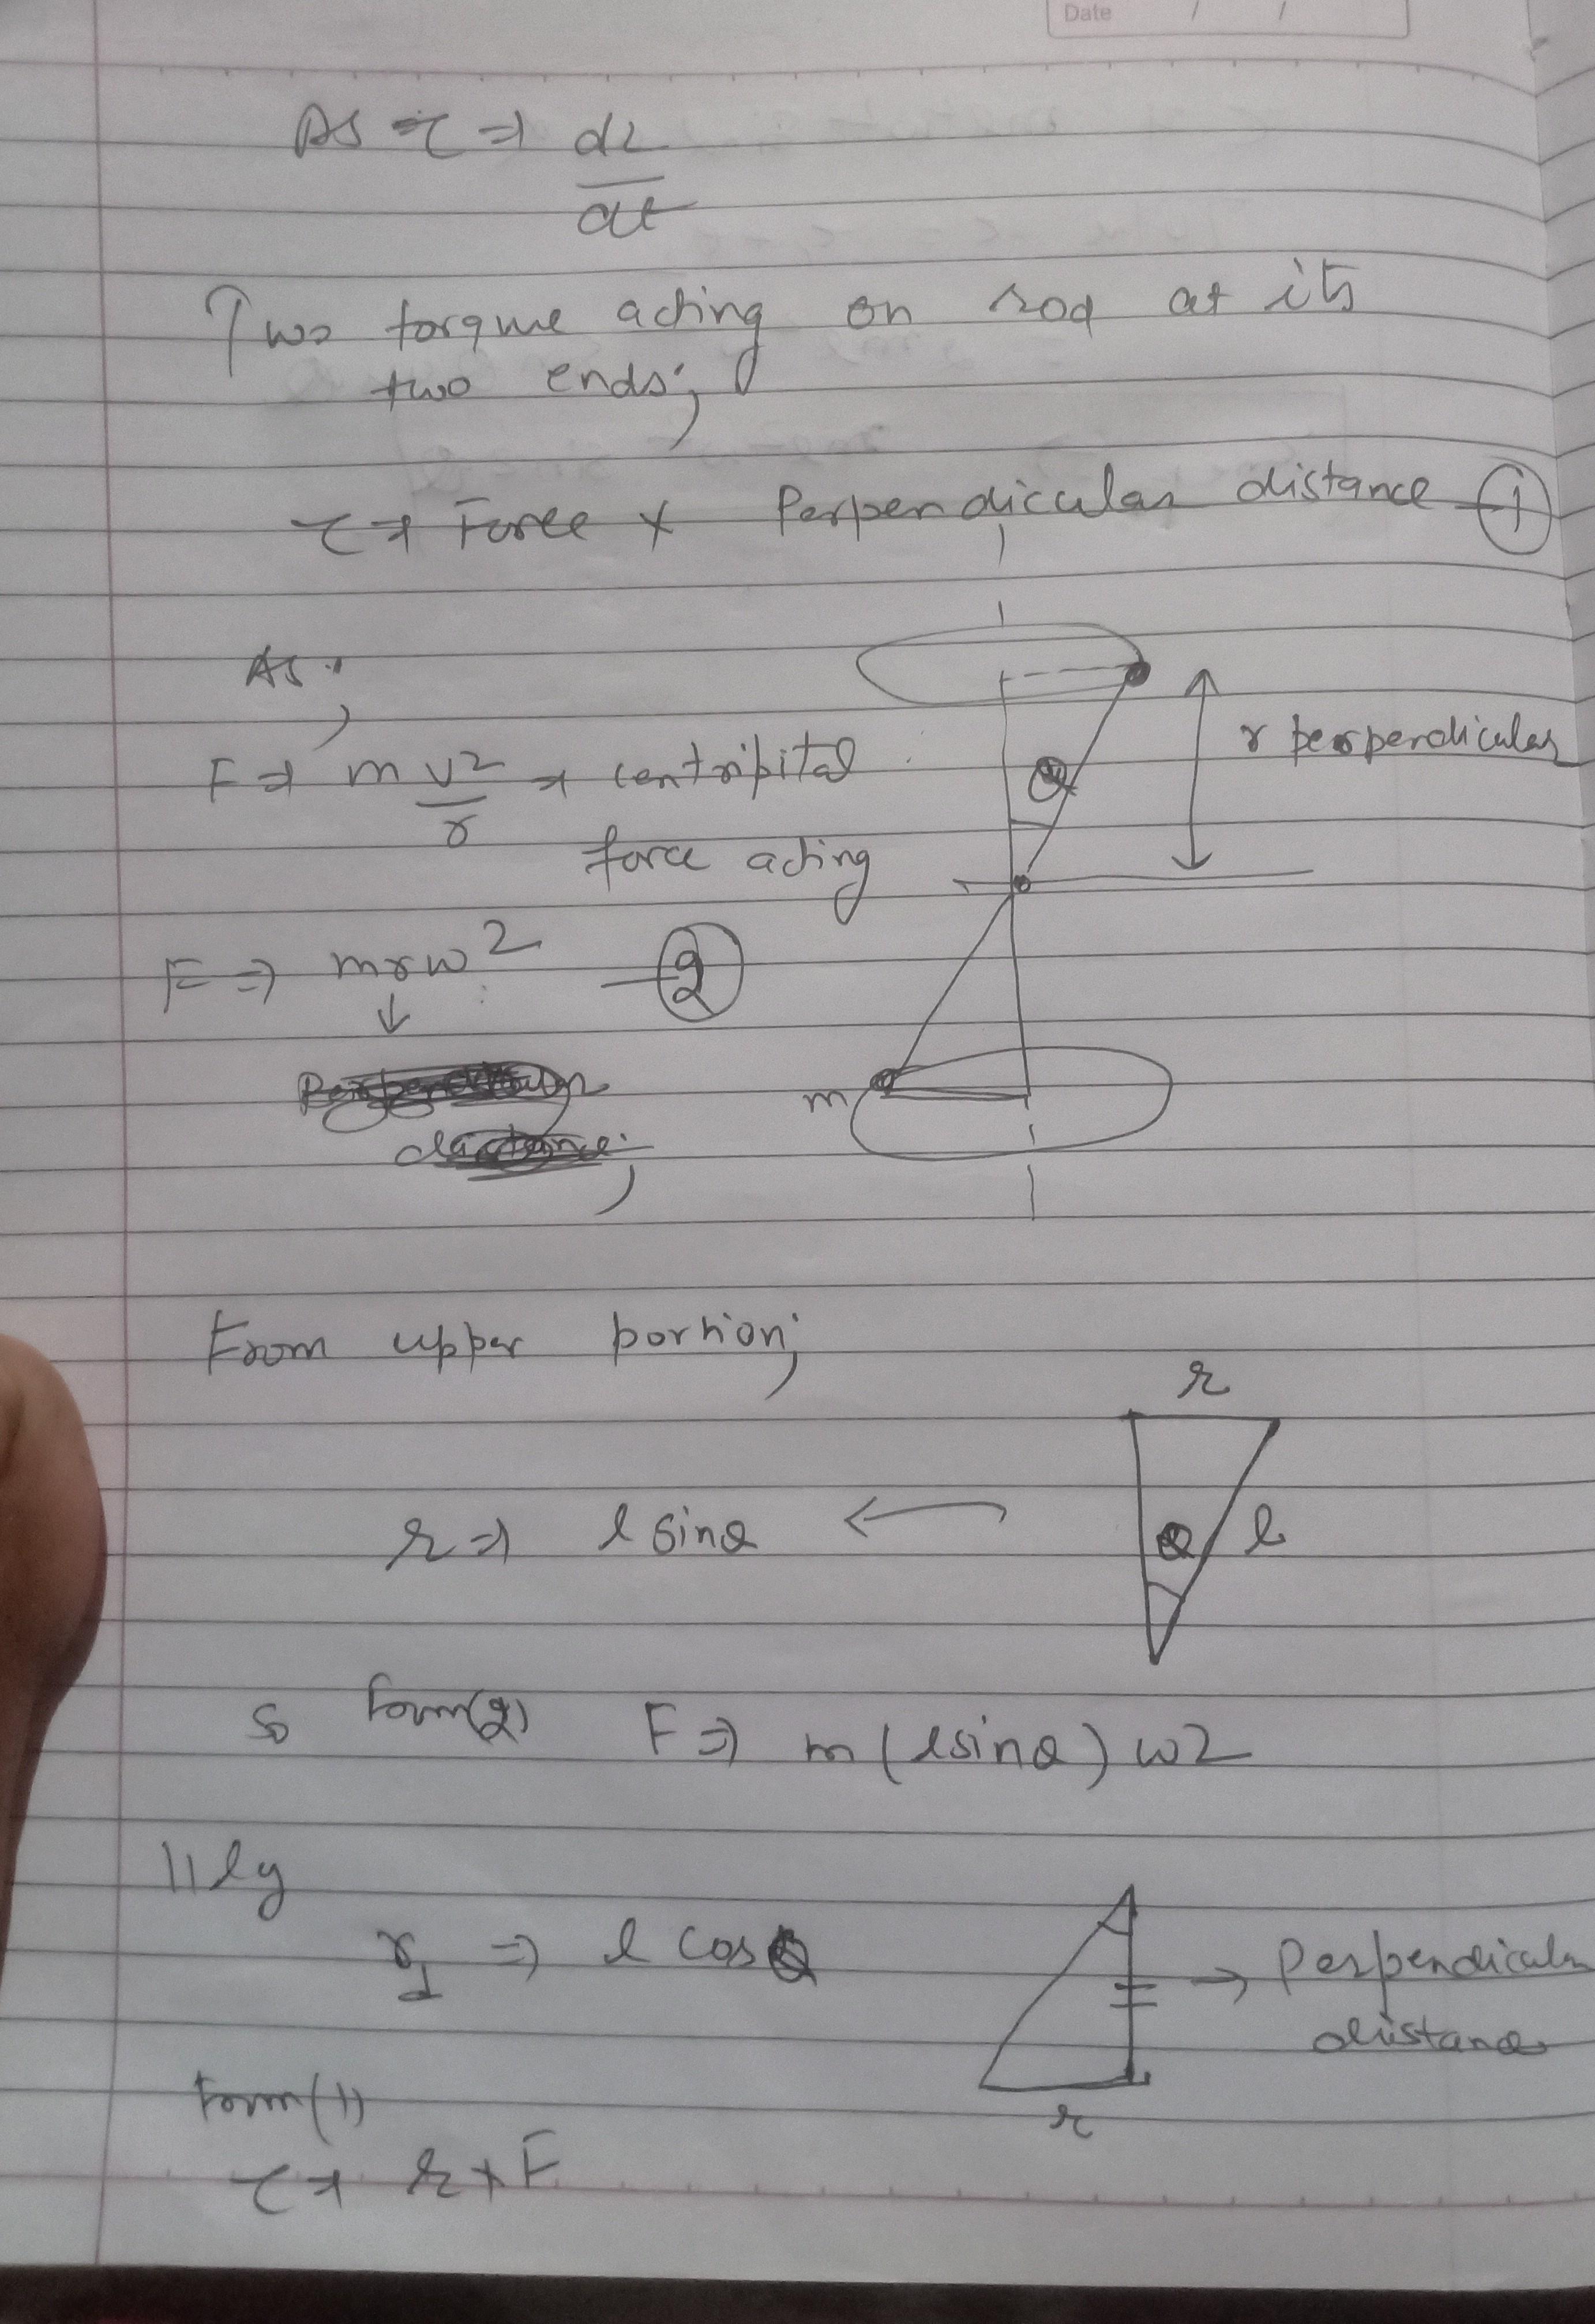 Date / /
As τ ⇒ dL
dt
Two torque acting on rod at its
two ends;
τ ⇒ Force × Perpendicular distance —①
As;
r perpendicular
F ⇒ m v² ⇒ centripital
r
θ
force acting
F ⇒ mrω² —②
↓
Perpendicular
distance;
m
From upper portion;
r
r ⇒ l sinθ ←
θ l
So form(2) F ⇒ m (lsinθ) ω2
||ly
r⊥ ⇒ l cosθ
→ Perpendicular
distance
form(1)
r
τ ⇒ r × F